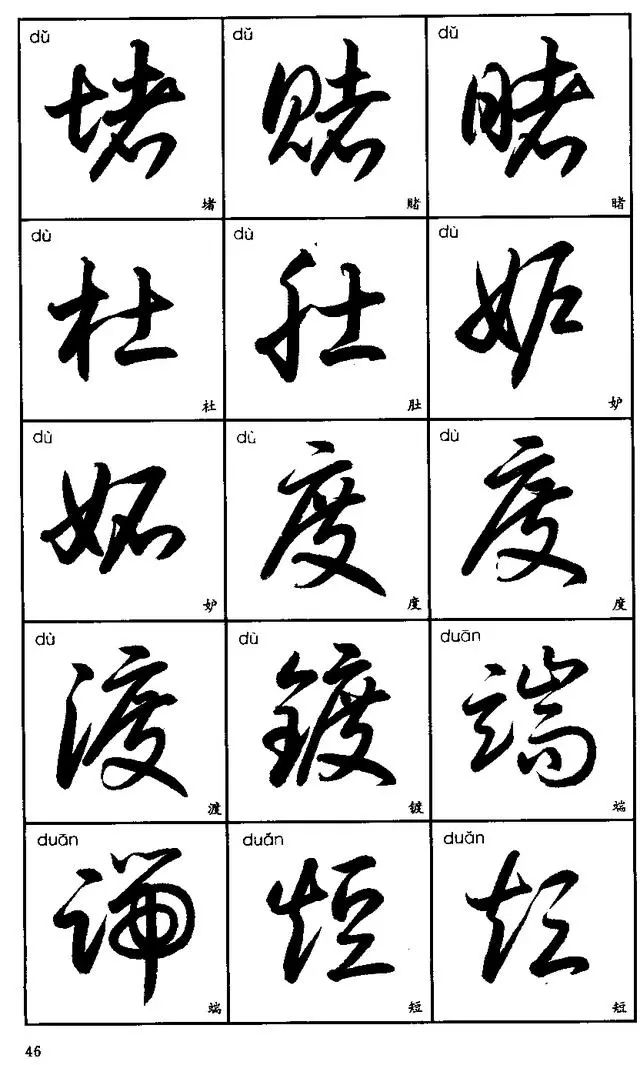 dǔ dǔ dǔ
堵 赌 睹
堵 赌 睹
dù dù dù
杜 肚 妒
杜 肚 妒
dù dù dù
妬 度 度
妒 度 度
dù dù duān
渡 鍍 端
渡 镀 端
duān duǎn duǎn
端 短 短
端 短 短
46